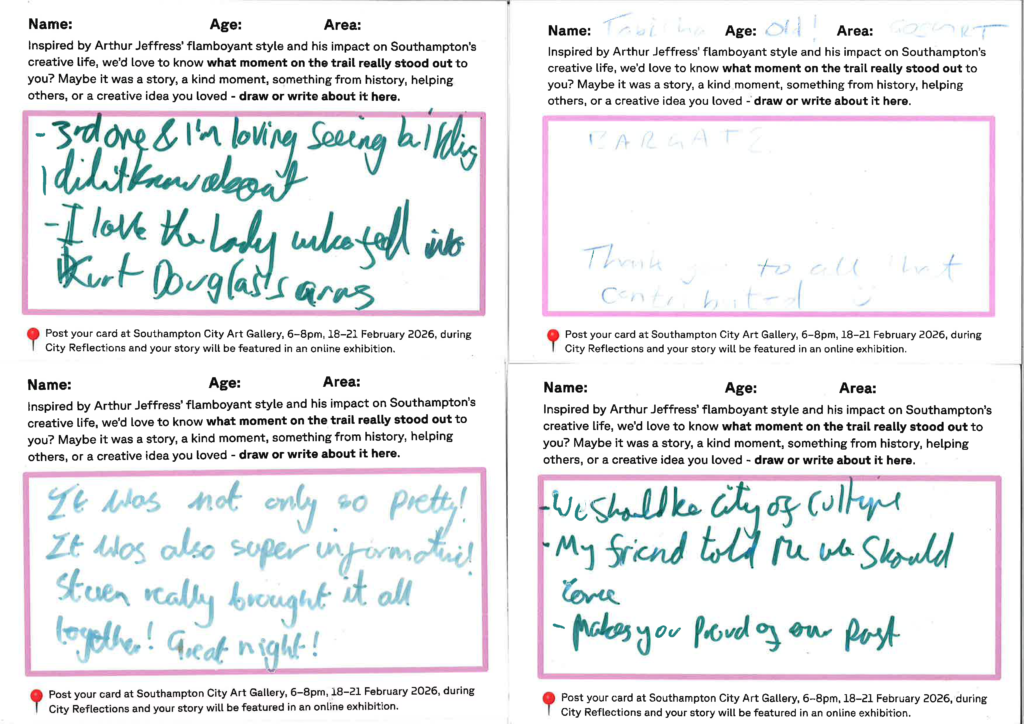 Name: Age: Area:
Inspired by Arthur Jeffress' flamboyant style and his impact on Southampton's
creative life, we'd love to know what moment on the trail really stood out to
you? Maybe it was a story, a kind moment, something from history, helping
others, or a creative idea you loved - draw or write about it here.
- 3rd one & I'm loving seeing building
I didn't know about
- I love the lady who fell into
Kurt Douglas's arms
Post your card at Southampton City Art Gallery, 6–8pm, 18–21 February 2026, during
City Reflections and your story will be featured in an online exhibition.
Name: Age: Old! Area:
Inspired by Arthur Jeffress' flamboyant style and his impact on Southampton's
creative life, we'd love to know what moment on the trail really stood out to
you? Maybe it was a story, a kind moment, something from history, helping
others, or a creative idea you loved - draw or write about it here.
BARGATE
Thank you to all that
contributed
Post your card at Southampton City Art Gallery, 6–8pm, 18–21 February 2026, during
City Reflections and your story will be featured in an online exhibition.
Name: Age: Area:
Inspired by Arthur Jeffress' flamboyant style and his impact on Southampton's
creative life, we'd love to know what moment on the trail really stood out to
you? Maybe it was a story, a kind moment, something from history, helping
others, or a creative idea you loved - draw or write about it here.
It was not only so pretty!
It was also super informative!
Steven really brought it all
together! Great night!
Post your card at Southampton City Art Gallery, 6–8pm, 18–21 February 2026, during
City Reflections and your story will be featured in an online exhibition.
Name: Age: Area:
Inspired by Arthur Jeffress' flamboyant style and his impact on Southampton's
creative life, we'd love to know what moment on the trail really stood out to
you? Maybe it was a story, a kind moment, something from history, helping
others, or a creative idea you loved - draw or write about it here.
- We should be City of Culture
- My friend told me we should
come
- Makes you proud of our past
Post your card at Southampton City Art Gallery, 6–8pm, 18–21 February 2026, during
City Reflections and your story will be featured in an online exhibition.